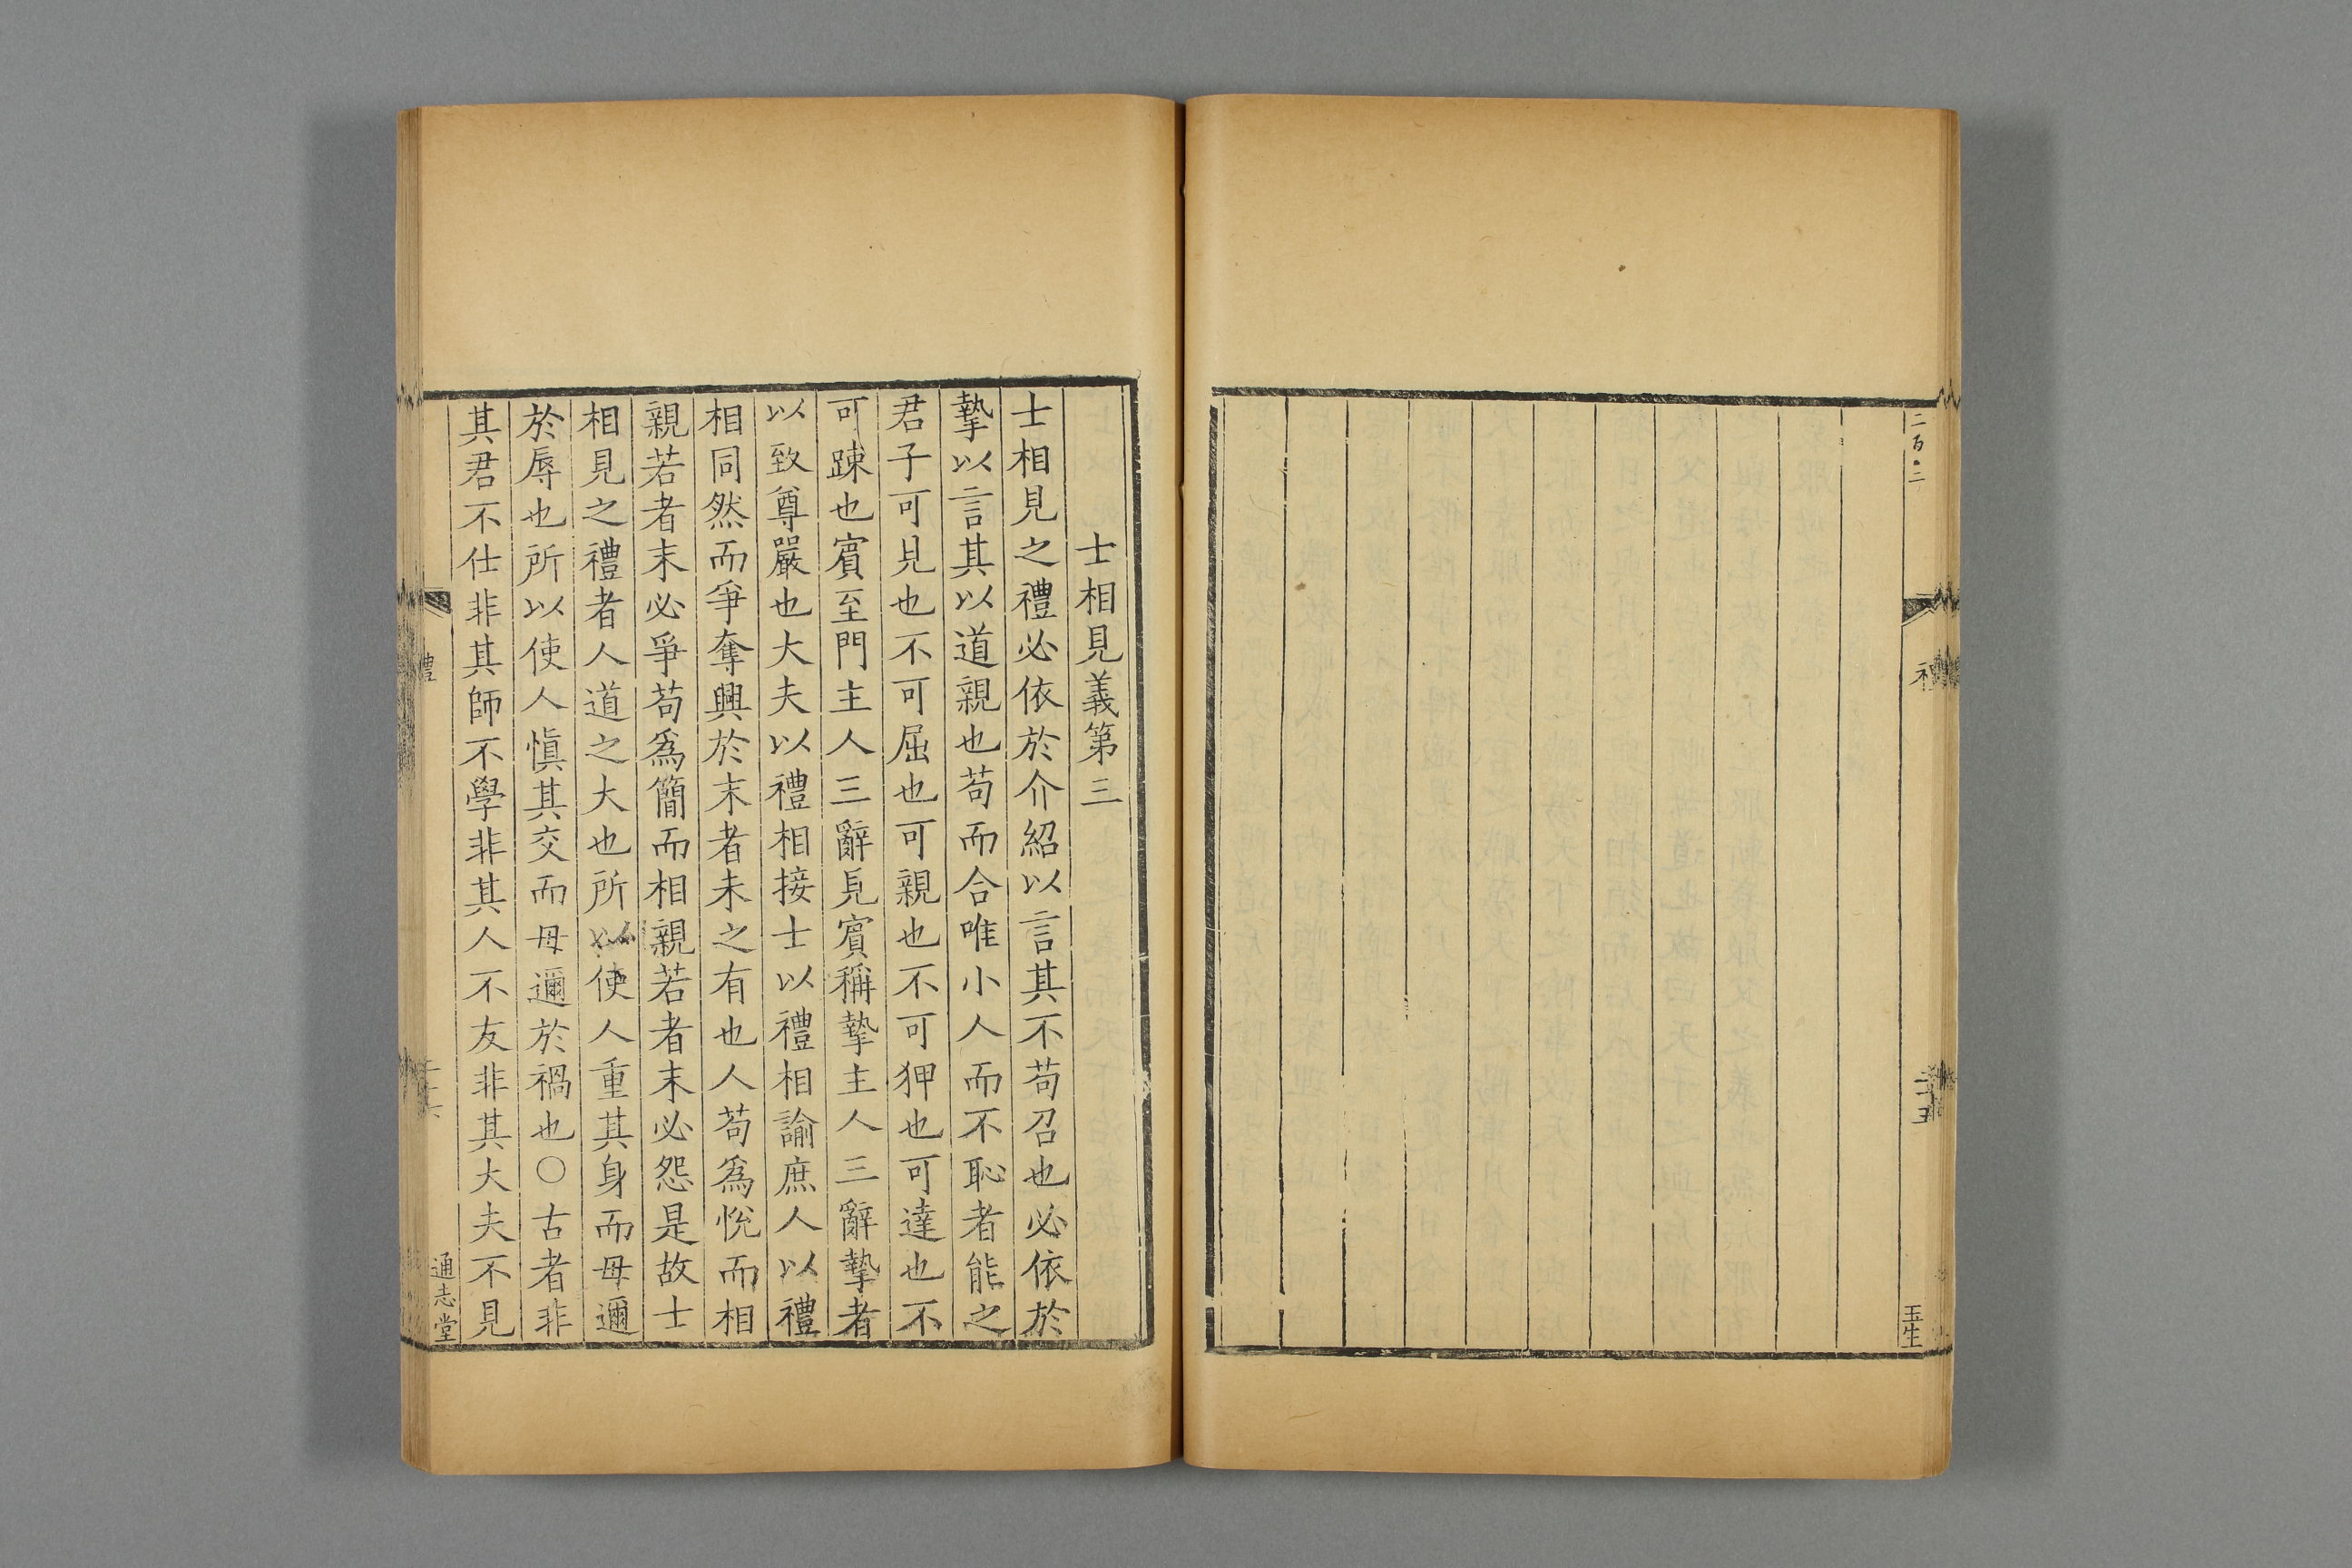 二百二
二十五
玉生
士相見義第三
士相見之禮必依於介紹以言其不苟召也必依於
摯以言其以道親也苟而合唯小人而不恥者能之
君子可見也不可屈也可親也不可狎也可達也不
可踈也賔至門主人三辭見賔稱摯主人三辭摯者
以致尊嚴也大夫以禮相接士以禮相諭庶人以禮
相同然而爭奪興於末者未之有也人苟爲悅而相
親若者末必爭苟爲簡而相親若者末必怨是故士
相見之禮者人道之大也所以使人重其身而毋邇
於辱也所以使人愼其交而毋邇於禍也〇古者非
其君不仕非其師不學非其人不友非其大夫不見
禮
通志堂